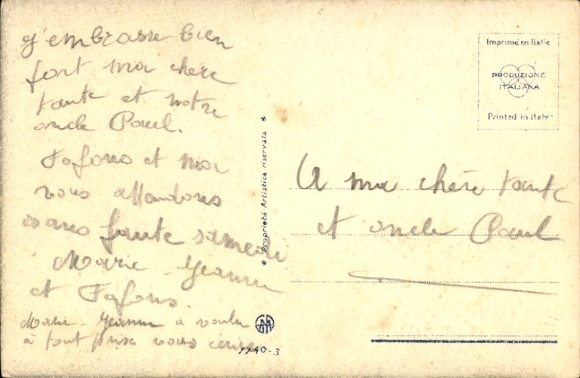 g'embrasse bien
fort ma chère
tante et notre
oncle Paul.
Fofons et moi
vous attendons
sans faute samedi
Marie-Jeanne
et Fofons.
Marie-Jeanne a voulu
à tout prix vous écrire
Proprietà Artistica riservata
1740-3
Imprimé en Italie
PRODUZIONE
ITALIANA
Printed in Italy
A ma chère tante
et oncle Paul